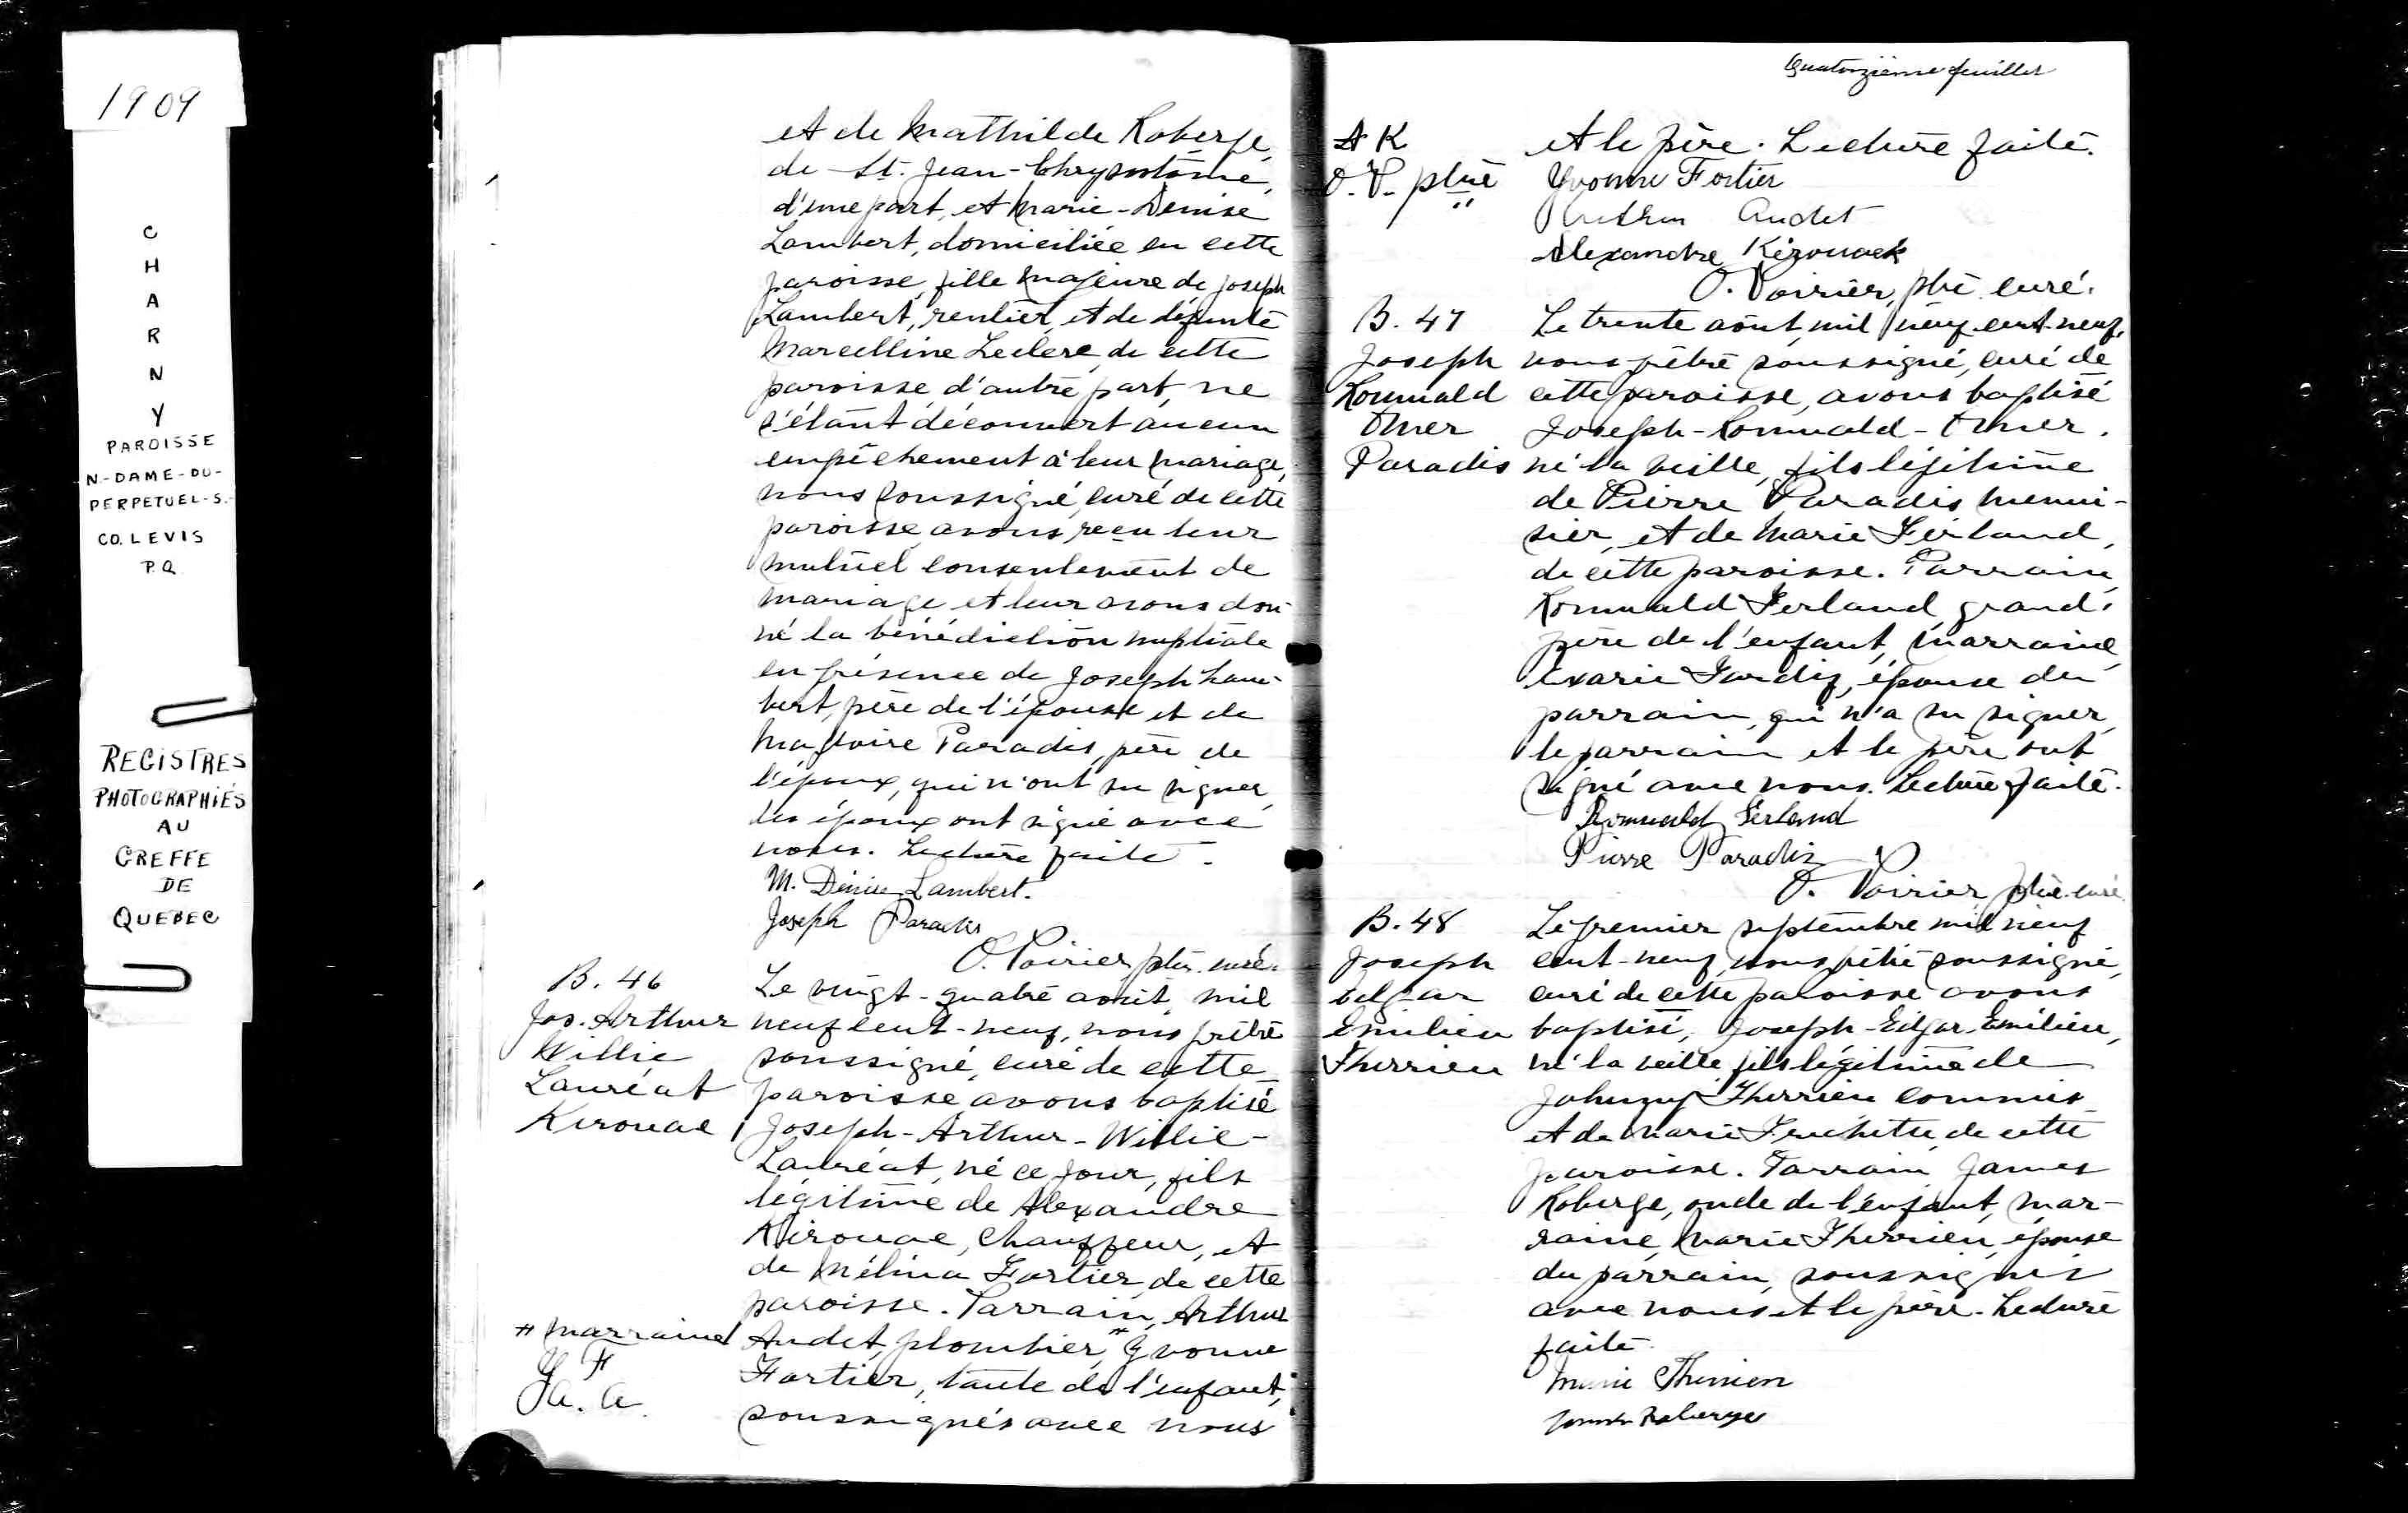 1909
C
H
A
R
N
Y
PAROISSE
N-DAME-DU-
PERPETUEL-S.
CO. LEVIS
P.Q
REGISTRES
PHOTOGRAPHIÉS
AU
GREFFE
DE
QUEBEC
et de Mathilde Roberge,
de St. Jean-Chrysostôme,
d'une part, et Marie-Denise
Lambert, domiciliée en cette
paroisse, fille majeure de Joseph
Lambert, rentier, et de défunte
Marcelline Leclerc, de cette
paroisse d'autre part, ne
s'étant découvert aucun
empêchement à leur mariage,
nous soussigné, curé de cette
paroisse avons reçu leur
mutuel consentement de
mariage et leur avons don-
né la bénédiction nuptiale
en présence de Joseph Lam-
bert, père de l'épouse et de
Magloire Paradis, père de
l'époux, qui n'ont su signer,
les époux ont signé avec
nous. Lecture faite.
M. Denise Lambert.
Joseph Paradis
O. Poirier ptre curé.
B. 46
Jos. Arthur
Willie
Lauréat
Kirouac
Le vingt-quatre août, mil
neuf cent-neuf, nous prêtre
soussigné, curé de cette
paroisse avons baptisé
Joseph-Arthur-Willie-
Lauréat, né ce jour, fils
légitime de Alexandre
Kirouac, chauffeur, et
de Mélina Fortier, de cette
paroisse. Parrain, Arthur
Audet, plombier, # Yvonne
Fortier, tante de l'enfant,
soussignés avec nous
# marraine
Y F
A. A.
Quatorzième feuillet
A K
O. P. ptre
et le père. Lecture faite.
Yvonne Fortier
Arthur Audet
Alexandre Kérouack
O. Poirier, ptre curé.
B. 47
Joseph
Romuald
Omer
Paradis
Le trente août, mil neuf cent-neuf,
nous prêtre soussigné, curé de
cette paroisse, avons baptisé
Joseph-Romuald-Omer,
né la veille, fils légitime
de Pierre Paradis menui-
sier, et de Marie Ferland,
de cette paroisse. Parrain,
Romuald Ferland, grand-
père de l'enfant, marraine,
épouse du
parrain, qui n'a su signer,
le parrain et le père ont
signé avec nous. Lecture faite.
Romuald Ferland
Pierre Paradis
O. Poirier ptre curé
B. 48
Joseph
Edgar
Emilien
Therrien
Le premier septembre mil neuf
cent-neuf, nous prêtre soussigné,
curé de cette paroisse avons
baptisé, Joseph-Edgar-Emilien,
né la veille fils légitime de
Johnny Therrien commis
et de Marie Fréchette, de cette
paroisse. Parrain, James
Roberge, oncle de l'enfant, mar-
raine, Marie Therrien, épouse
du parrain, soussignés
avec nous et le père. Lecture
faite.
Marie Therrien
James Roberge